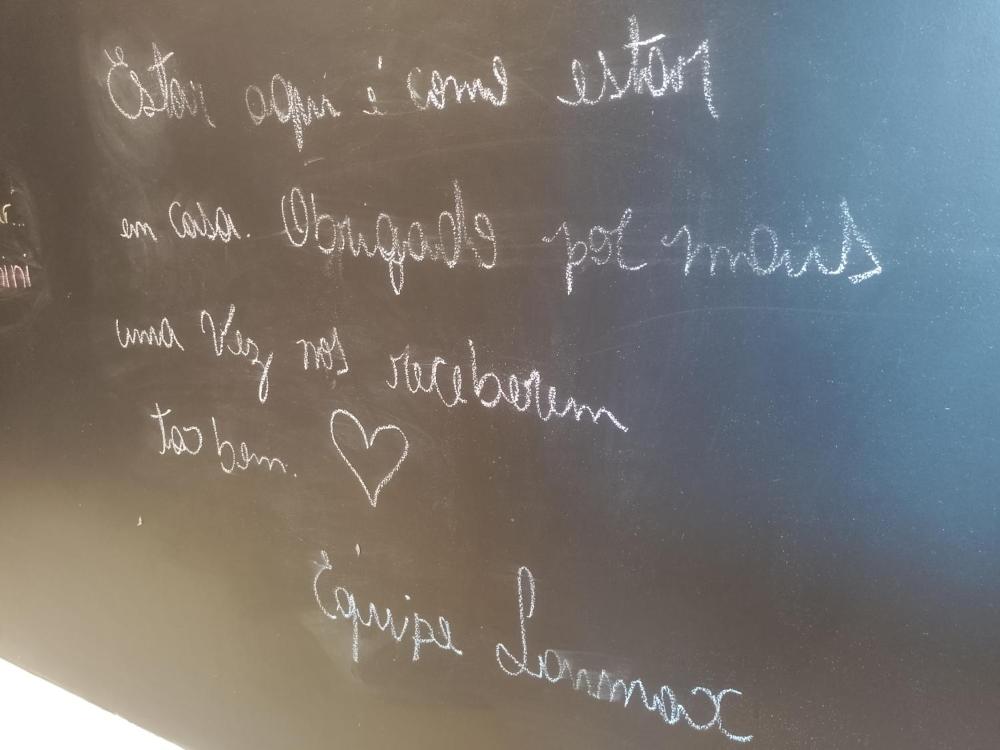 Estar aqui é como estar
em casa. Obrigado por mais
uma vez nos receberem
tão bem. ♡
Equipe Lanmax